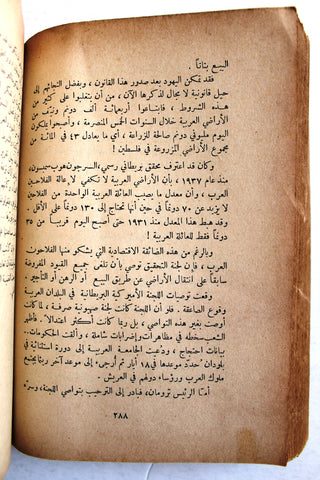 البيع بتاتاً .
فقد تمكن اليهود بعد صدور هذا القانون ، وبفضل التجائهم إلى
حيل قانونية لا مجال لذكرها الآن ، من أن يتغلبوا على كثير من
هذه الشروط ، فابتاعوا أربعمائة ألف دونم ونيف من
الأراضي العربية خلال السنوات الخمس المنصرمة ، وأصبحوا يملكون
اليوم مليوني دونم صالحة للزراعة ، أي ما يعادل ٤٣ في المائة من
مجموع الأراضي المزروعة في فلسطين !
وكان قد اعترف محقق بريطاني رسمي ، السرجون هوب سمبسون ،
منذ عام ١٩٣٧ ، بأن الأراضي العربية لا تكفي لاعالة الفلاحين
العرب ، وأن معدل ما يصب العائلة العربية الواحدة من الفلاحين
هو ٧٠ دونماً في حين أنها تحتاج إلى ١٣٠ دونماً على الأقل .
وقد هبط هذا المعدل منذ ١٩٣١ حتى أصبح اليوم قريباً من ٣٥
دونماً فقط للعائلة العربية !
وبالرغم من هذه الضائقة الاقتصادية التي يشكو منها الفلاحون
العرب ، فإن لجنة التحقيق توصي بأن تلغى جميع القيود المفروضة
سابقاً على انتقال الأراضي عن طريق البيع أو الرهن أو التأجير .
وقعت توصيات اللجنة الأميركية البريطانية في البلدان العربية
وقوع الصاعقة . فلو أن لجنة صهيونية صرفة ، قامت بالتحقيق لما كانت
أوصت بغير هذه التواصي ، بل ربما كانت أكثر اعتدالاً . فأظهر
الشعب سخطه في مظاهرات وإضرابات شاملة ، وألقت الحكومات
بيانات احتجاج . ودعيت الجامعة العربية إلى دورة استثنائية في
بلودان حدد موعدها في ١٨ أيار ثم أرجىء إلى موعد آخر ريثما يجتمع
ملوك العرب ورؤساء دولهم في العريش .
أما الرئيس ترومان ، فبادر إلى الترحيب بتواصي اللجنة ، وسره
٢٨٨